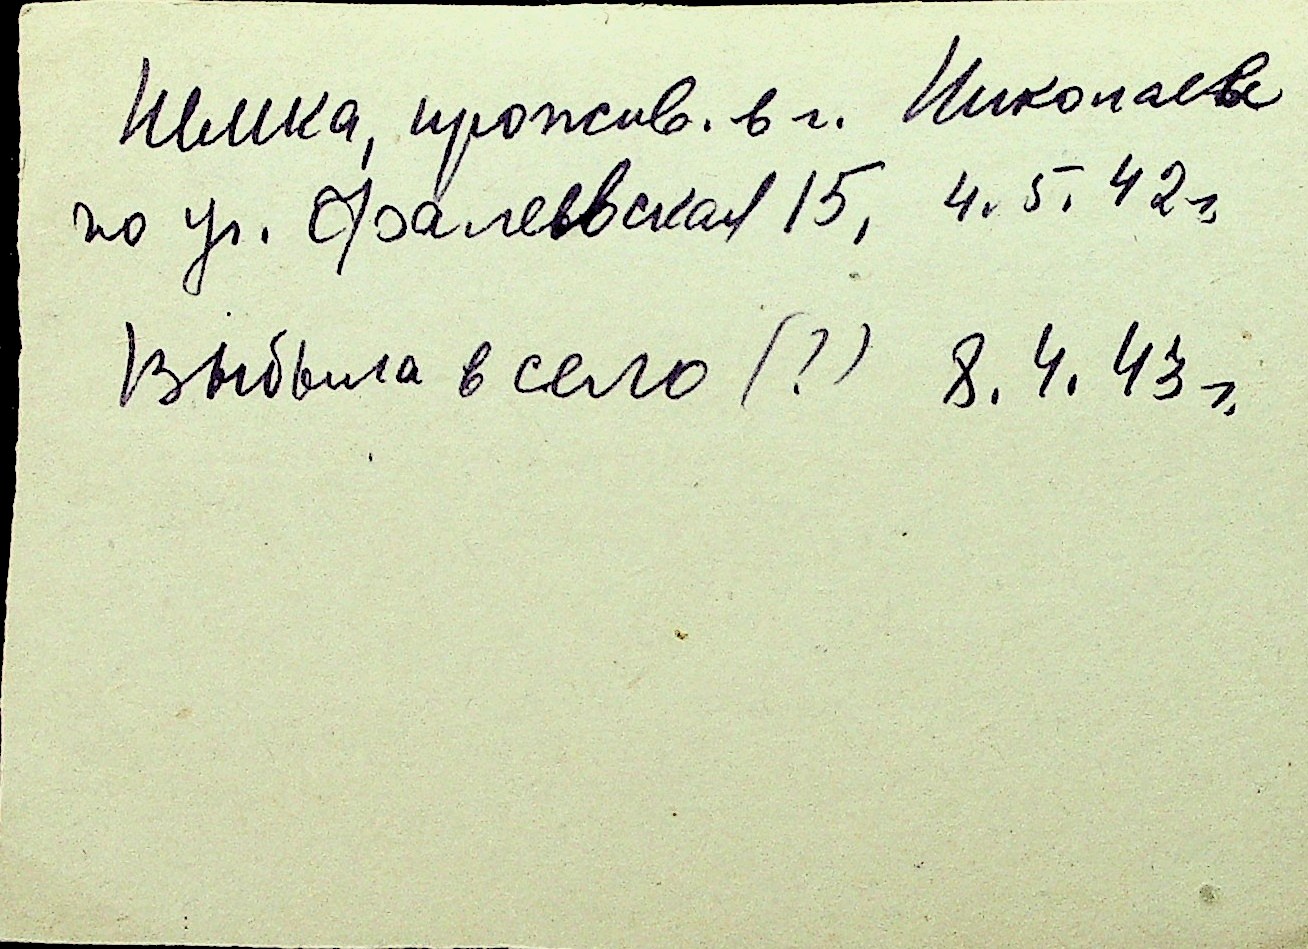 Немка, прожив. в г. Николаеве
по ул. Фалеевская 15, 4.5.42 г.
Выбыла в село (?) 8.4.43 г.